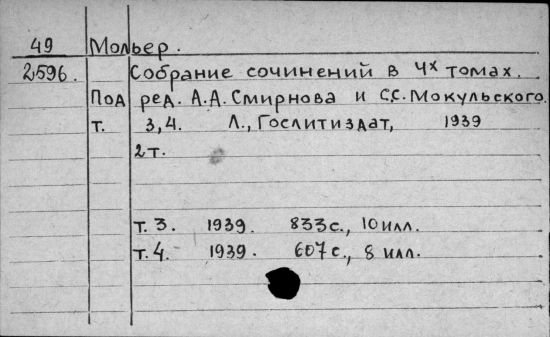 49 Мольер.
2596. Собрание сочинений в 4х томах.
Под ред. А.А. Смирнова и С.С. Мокульского.
т. 3,4. Л., Гослитиздат, 1939
2 т.
т. 3. 1939. 833 с., 10 илл.
т. 4. 1939. 607 с., 8 илл.